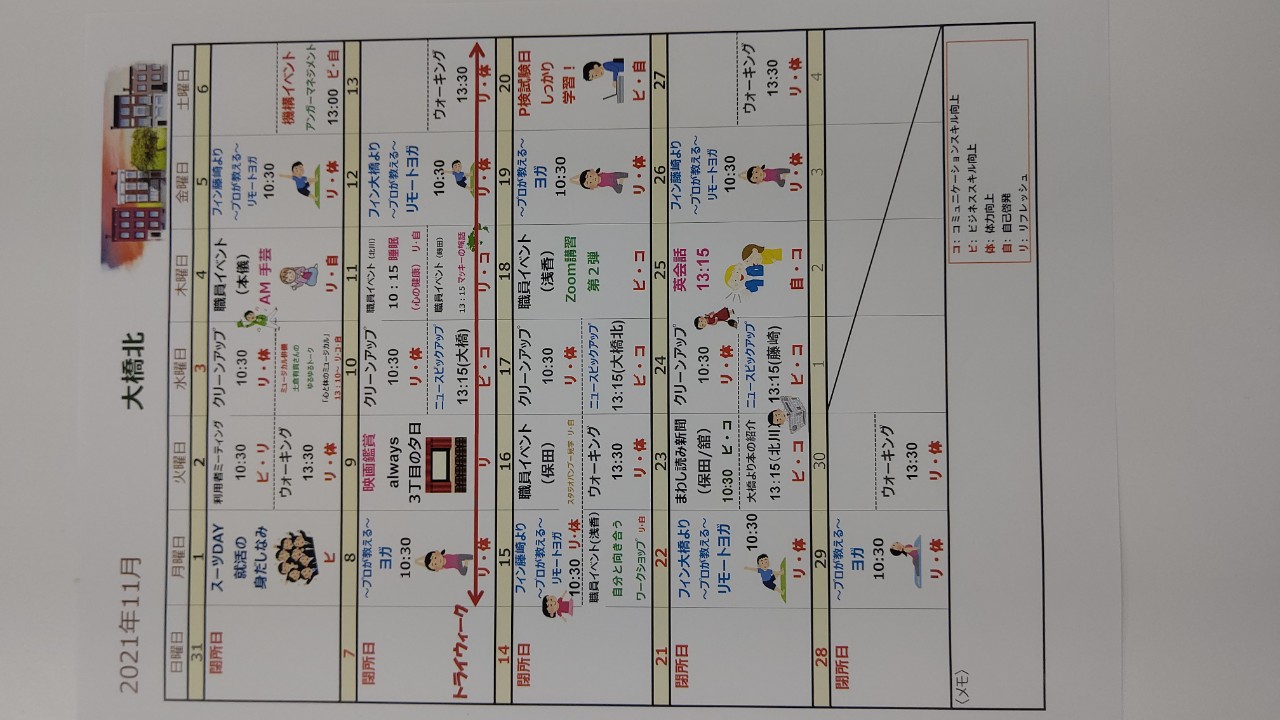 2021年11月 大橋北
日曜日 月曜日 火曜日 水曜日 木曜日 金曜日 土曜日
31 1 2 3 4 5 6
閉所日
スーツDAY
就活の
身だしなみ
ビ
利用者ミーティング
10:30
ビ・リ
ウォーキング
13:30
リ・体
クリーンアップ
10:30
リ・体
ミュージカル俳優
土倉有貴さんの
ゆるゆるトーク
「心と体のミュージカル」
13:10~ リ・コ・自
職員イベント
（本儀）
AM 手芸
リ・自
フィン藤崎より
～プロが教える～
リモートヨガ
10:30
リ・体
機構イベント
アンガーマネジメント
13:00 ビ・自
7 8 9 10 11 12 13
閉所日
トライウィーク
～プロが教える～
ヨガ
10:30
リ・体
映画鑑賞
always
3丁目の夕日
リ
クリーンアップ
10:30
リ・体
ニュースピックアップ
13:15(大橋)
ビ・コ
職員イベント（北川）
10：15 睡眠
（心の健康） リ・自
職員イベント
13：15 マッキーの怪談
リ・コ
フィン大橋より
～プロが教える～
リモートヨガ
10:30
リ・体
ウォーキング
13:30
リ・体
14 15 16 17 18 19 20
閉所日
フィン藤崎より
～プロが教える～
リモートヨガ
10:30 リ・体
職員イベント(浅香)
自分と向き合う
ワークショップ リ・自
職員イベント
（保田）
スタジオバンブー見学 リ・自
ウォーキング
13:30
リ・体
クリーンアップ
10:30
リ・体
ニュースピックアップ
13:15(大橋北)
ビ・コ
職員イベント
（浅香）
Zoom講習
第２弾
ビ・コ
～プロが教える～
ヨガ
10:30
リ・体
P検試験日
しっかり
学習！
ビ・自
21 22 23 24 25 26 27
閉所日
フィン大橋より
～プロが教える～
リモートヨガ
10:30
リ・体
まわし読み新聞
（保田/舘）
10:30 ビ・コ
大橋より本の紹介
13:15(北川)
ビ・コ
クリーンアップ
10:30
リ・体
ニュースピックアップ
13:15(藤崎)
ビ・コ
英会話
13:15
自・コ
フィン藤崎より
～プロが教える～
リモートヨガ
10:30
リ・体
ウォーキング
13:30
リ・体
28 29 30 1 2 3 4
閉所日
～プロが教える～
ヨガ
10:30
リ・体
ウォーキング
13:30
リ・体
〈メモ〉
コ：コミュニケーションスキル向上
ビ：ビジネススキル向上
体：体力向上
自：自己啓発
リ：リフレッシュ